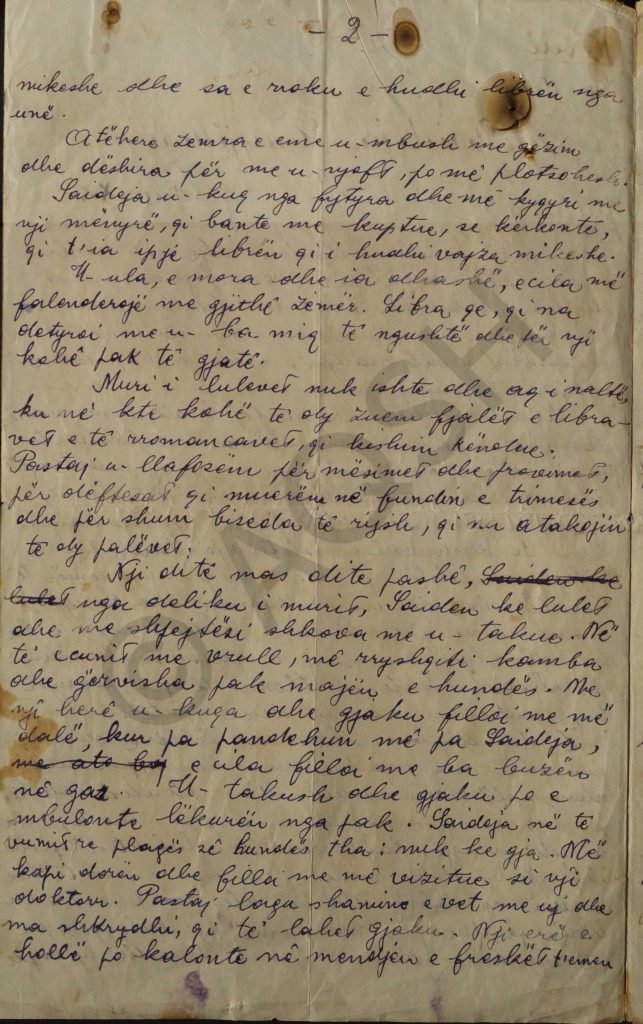 - 2 -
mikeshe dhe sa e rroku e hudhi librën nga
unë.
Atëhere zemra e eme u-mbush me gëzim
dhe dëshira për me u-njoft, po më plotsohesh.
Saideja u-kuq nga fytyra dhe më kyqyri me
nji mënyrë, qi bante me kuptue, se kërkonte,
qi t'ia ipjë librën qi i hudhi vajza mikeshe.
U-ula, e mora dhe ia dhashë, ecila më
falenderojë me gjithë zemër. Libra qe, qi na
detyroi me u-ba miq të ngushtë dhe për nji
kohë pak të gjatë.
Muri i lulevet nuk ishte dhe aq i naltë,
ku në kte kohë të dy zuem fjalët e libra-
vet e të rromancavet, qi kishim këndue.
Pastaj u-llafosëm për mësimet dhe provimet,
për dëftesat qi muerëm në fundin e trimesës
dhe për shum biseda të rijsh, qi na atakojin
të dy palëvet.
Nji ditë mas dite pashë, Saiden ke
lulet nga deliku i murit, Saiden ke lulet
dhe me shpejtësi shkova me u-takue. Në
të ecunit me vrull, më rryshqiti kamba
dhe gërvisha pak majën e hundës. Me
nji herë u-kuqa dhe gjaku filloi me më
dalë, kur pa pandehun më pa Saideja,
me ato buz ecila filloi me ba buzën
në gaz. U-takush dhe gjaku po e
mbulonte lëkurën nga pak. Saideja në të
vumit re plagës së hundës tha: nuk ke gja. Më
kapi dorën dhe filla me më vizitue si nji
doktorr. Pastaj lagu shaminë e vet me uj dhe
ma shkrydhi, qi të lahet gjaku. Nji erë e
hollë po kalonte në mendjen e freskët t'emen
© AQSH